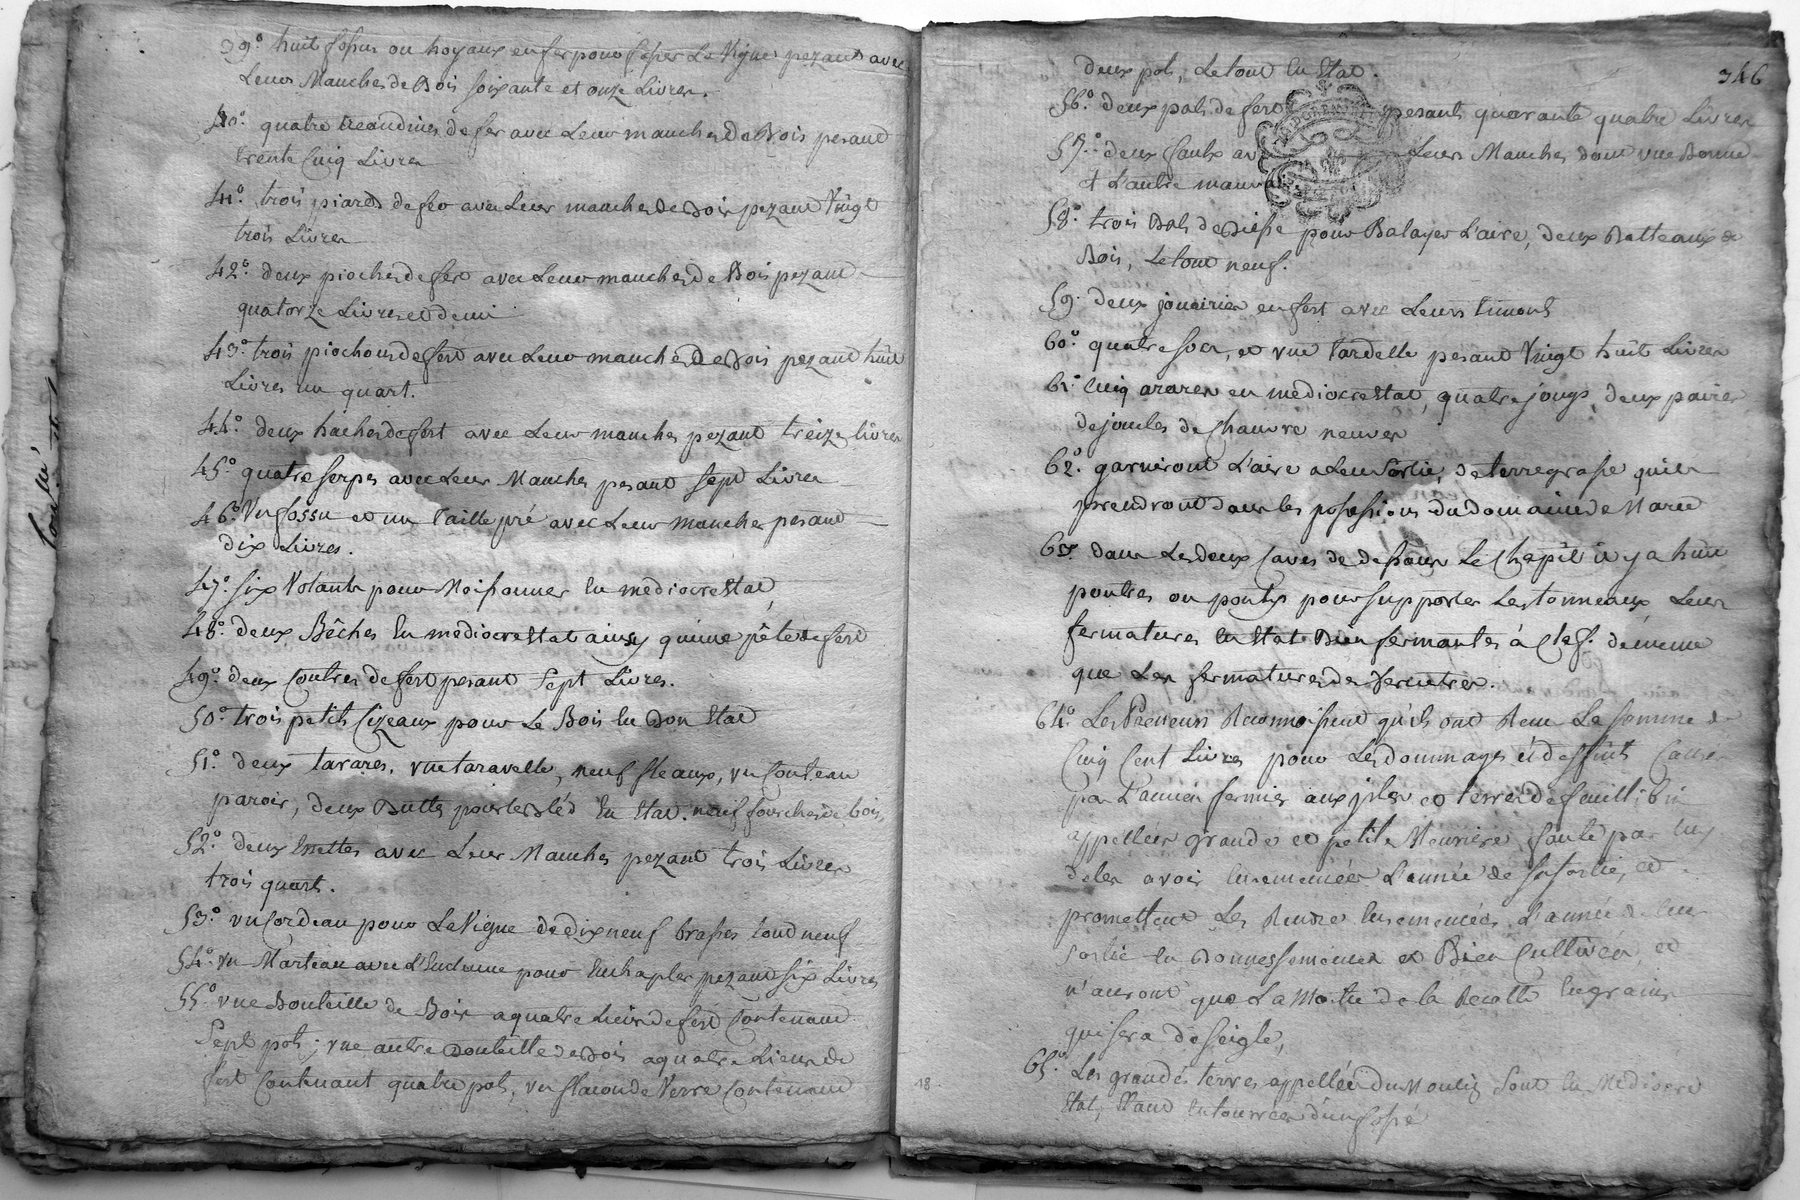 39.° huit fossous ou hoyaux en fer pour fosser La Vigne pezant avec
Leurs Manches de Bois soixante et onze Livres.
40.° quatre treandines de fer avec Leurs manches de Bois pesant
trente Cinq Livres
41.° trois piards de fer avec Leurs manches de Bois pezant Vingt
trois Livres
42.° deux pioches de fert avec Leurs manches de Bois pezant
quatorze Livres et demi
43.° trois piochons de fert avec Leurs manches de Bois pezant huit
Livres un quart.
44.° deux haches de fert avec Leurs manches pezant treize livres
45.° quatre serpes avec Leurs Manches pesant sept Livres
46.° Un fossu et un taille pré avec Leurs manches pesant
dix Livres.
47.° six Volants pour Moissonner En mediocre Etat,
48.° deux Bêches En mediocre Etat ainsy qu'une pêle de fert
49.° deux Coutres de fert pesant Sept Livres.
50.° trois petits Cizeaux pour Le Bois En Bon Etat
51.° deux tarares, une taravelle, neuf fleaux, un Couteau
paroir, deux Butts pour les bléd En Etat. neuf fourches de bois,
52.° deux avec Leurs Manches pezant trois Livres
trois quart.
53.° un Cordeau pour La Vigne de dix neuf brasses tout neuf
54.° un Marteau avec L'Enclume pour Enchapler pezant six Livres
55.° une Bouteille de Bois a quatre Liens de fert Contenant
Sept pots; une autre Bouteille de Bois a quatre Liens de
fert Contenant quatre pots, un flacon de Verre Contenant
346
deux pots, Le tout En Etat.
56.° deux pals de fert pesants quarante quatre Livres
57.° deux faulx Leurs Manches dont une Bonne
et L'autre mauvaise
58.° trois Bals de pour Balayer L'aire, deux Ratteaux de
Bois, Le tout neuf.
59. deux en fert avec Leurs timons
60.° quatre socs, et une tardelle pesant Vingt huit Livres
61.° Cinq arares en mediocre Etat, quatre jougs, deux paires
de joucles de Chanvre neuves
62.° garniront L'aire a Leur Sortie, de terre grasse qu'ils
prendront dans les possessions du domaine de
63. dans Les deux Caves de dessous Le Chapit il y a huit
poutres ou ponts pour supporter Les tonneaux Leurs
fermatures En Etat Bien fermantes à Clef. de meme
que Les fermatures des fenetres.
64.° Les Preneurs Reconnoissent qu'ils ont Reçu La somme de
Cinq Cent Livres pour Les dommages et deffuits Causé
par L'ancien fermier aux et terres de
appellées grande et petite faute par luy
de les avoir Ensemencées L'année de sa sortie, et
promettent Les Rendre Ensemencées L'année de leur
sortie En Bonnes semences et Bien Cultivées, et
n'auront que La Moitié de la Recolte En grains
qui sera de seigle,
65.° Les grandes terres appellées du Moulin sont En Mediocre
Etat, Etant Entourrées d'un fossé
18